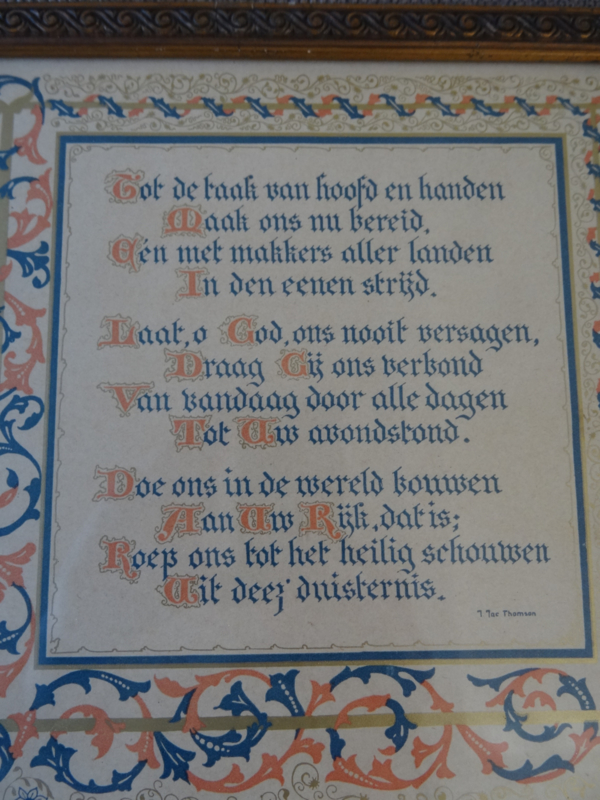 Tot de taak van hoofd en handen
Maak ons nu bereid,
Eén met makkers aller landen
In den eenen strijd.
Laat, o God, ons nooit versagen,
Draag Gij ons verbond
Van vandaag door alle dagen
Tot Uw avondstond.
Doe ons in de wereld bouwen
Aan Uw Rijk, dat is;
Roep ons tot het heilig schouwen
Uit deez' duisternis.